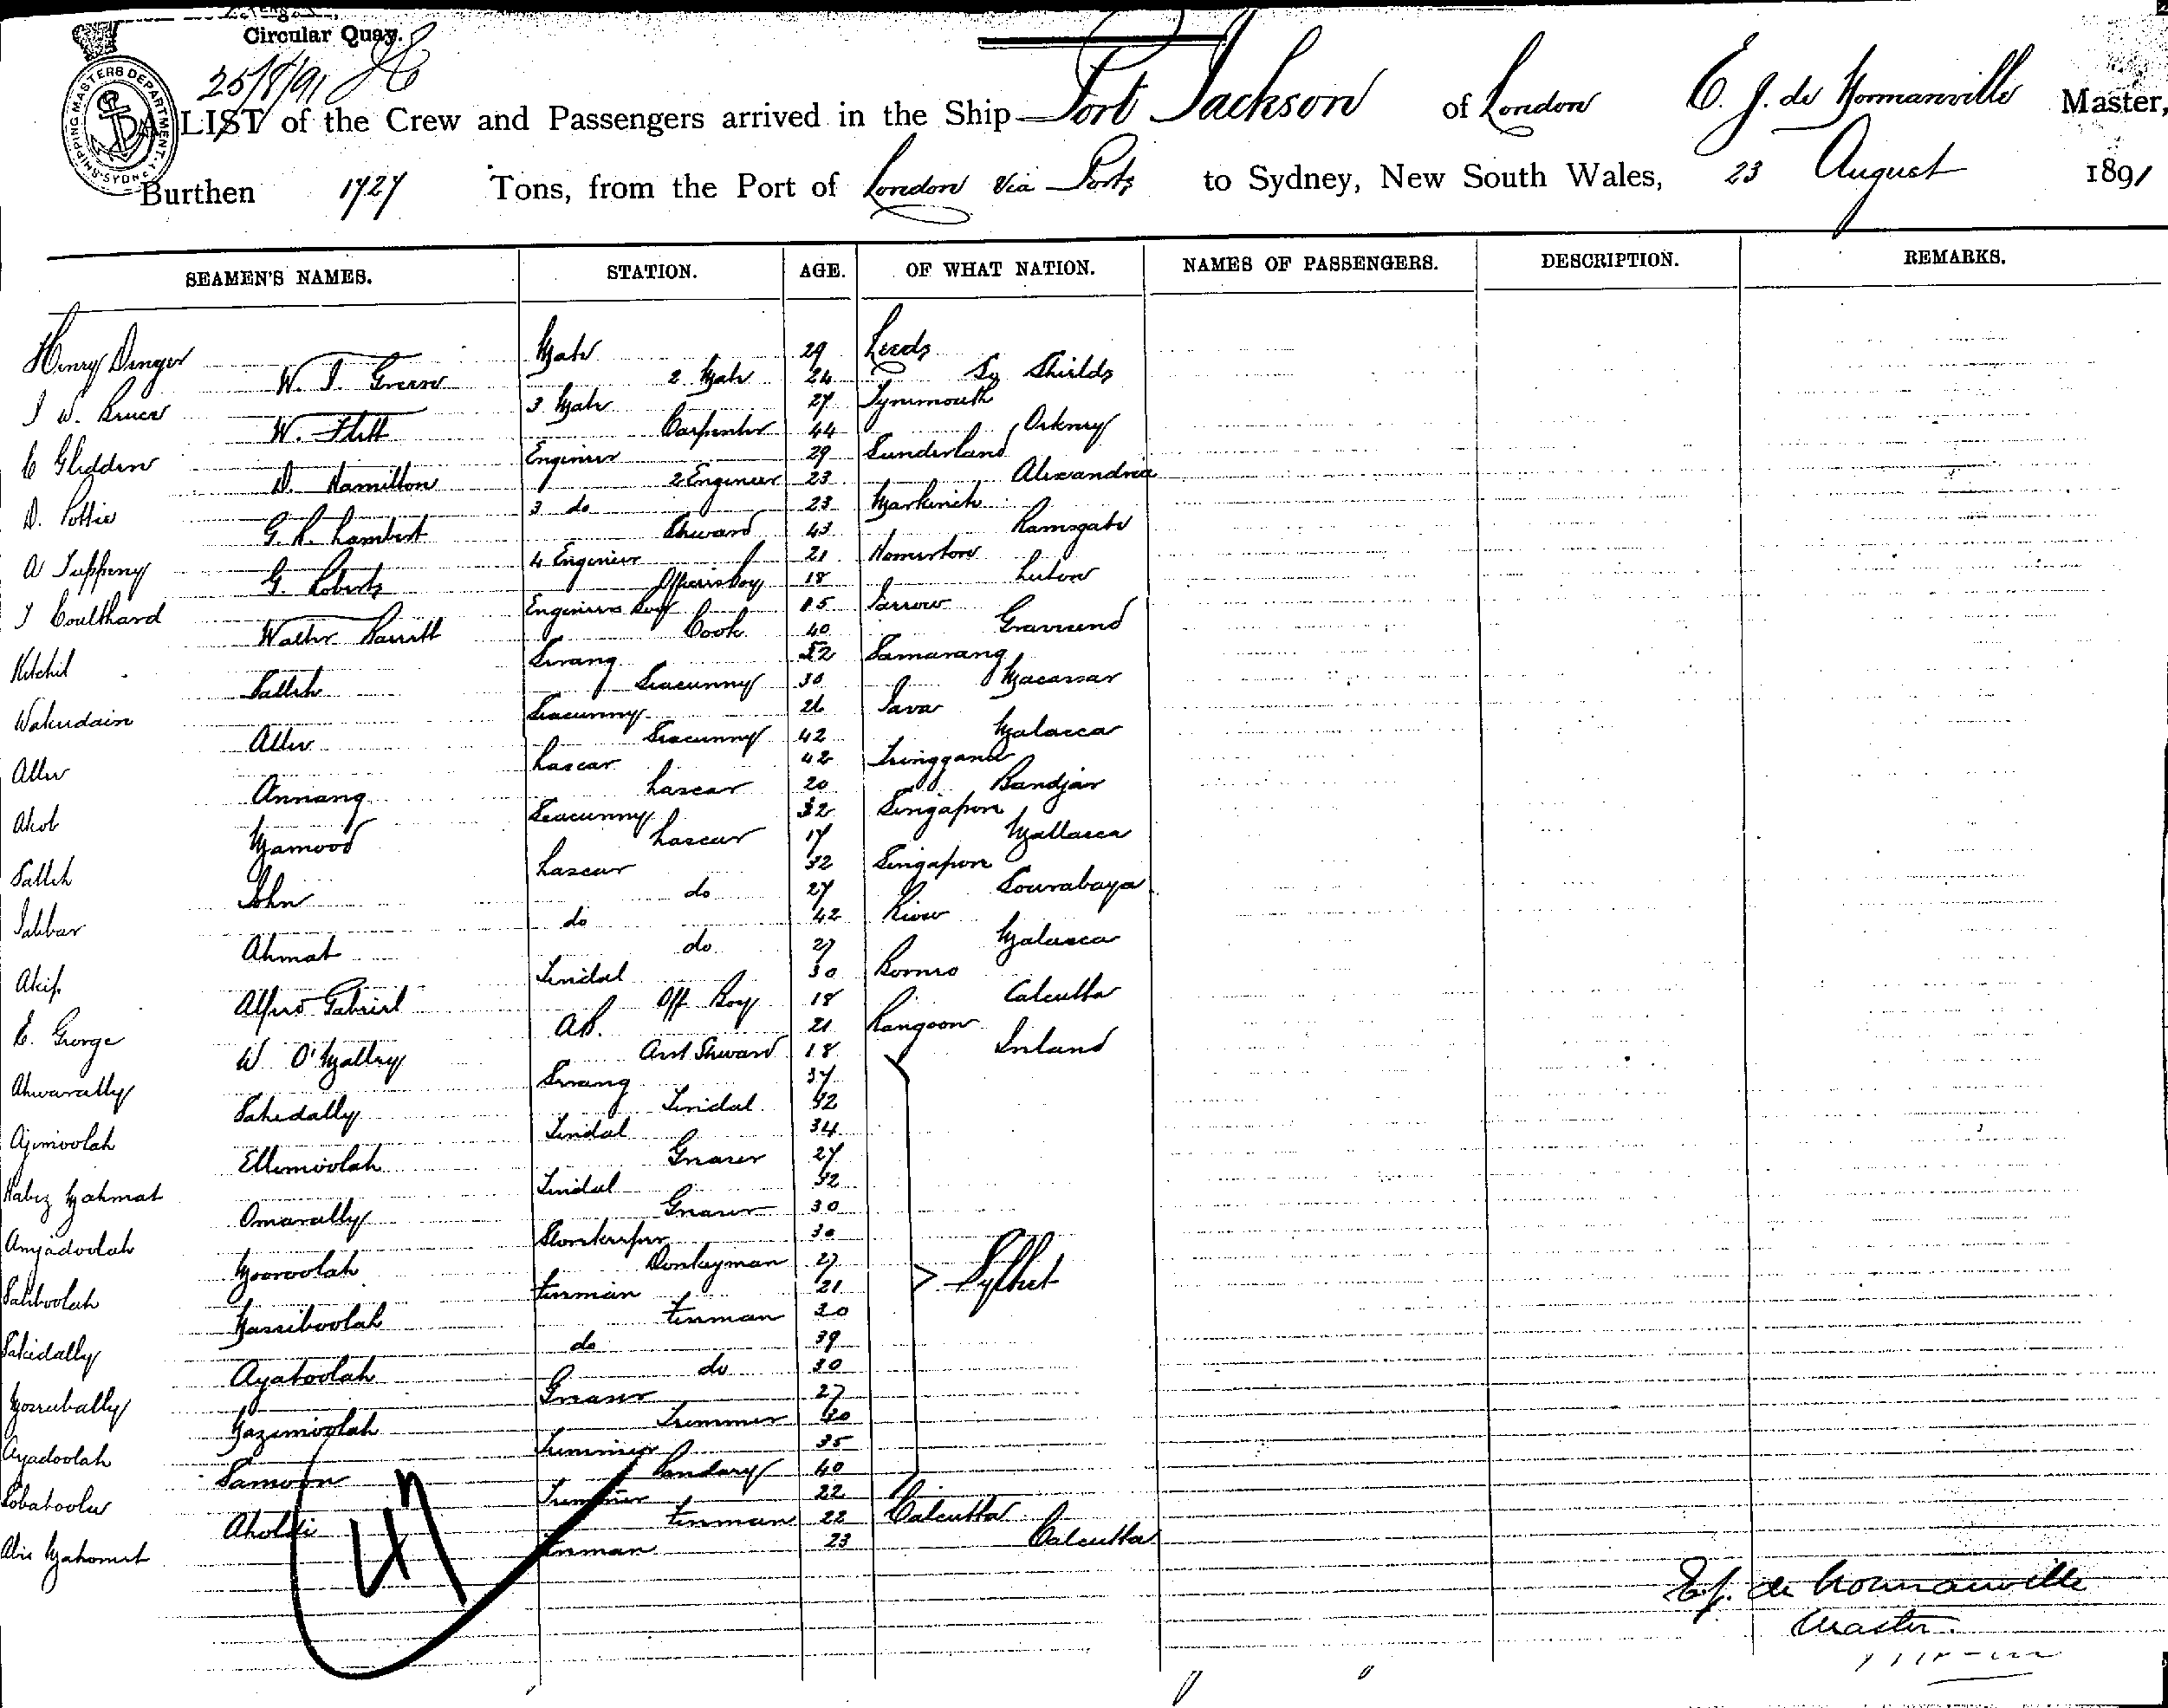 Circular Quay.
25/8/91
SHIPPING MASTERS DEPARTMENT SYDNEY
A LIST of the Crew and Passengers arrived in the Ship Port Jackson of London E. J. de Normanville Master,
Burthen 1727 Tons, from the Port of London via Ports to Sydney, New South Wales, 23 August 1891
SEAMEN'S NAMES. STATION. AGE. OF WHAT NATION. NAMES OF PASSENGERS. DESCRIPTION. REMARKS.
Henry Dinger Mate 29 Leeds
W. J. Greene 2 Mate 24 So Shields
J W. Bruce 3 Mate 27 Tynemouth
W. Flett Carpenter 44 Orkney
C Glidden Engineer 29 Sunderland
D. Hamilton 2 Engineer 23 Alexandria
D. Pottie 3 do 23 Markinch
G. R. Lambert Steward 43 Ramsgate
A Tuppeny 4 Engineer 21 Homerton
G. Roberts Officers boy 18 Luton
J Coulthard Engineers boy 15 Jarrow
Walter Barrett Cook 40 Gravesend
Ketchil Serang 52 Samarang
Salleh Seacunny 30 Macassar
Wakudain Seacunny 26 Java
Allie Seacunny 42 Malacca
Allie Lascar 42 Tringganu
Annang Lascar 20 Bandjar
Akob Seacunny 32 Singapore
Mamood Lascar 17 Mallacca
Salleh Lascar 32 Singapore
John do 27 Sourabaya
Jabbar do 42 Riow
Ahmat do 27 Malacca
Akip Tindal 30 Borneo
Alfred Gabriel Off Boy 18 Calcutta
E. George AB. 21 Rangoon
W O'Malley Asst Steward 18 Ireland
Anwarally Serang 37
Sahedally Tindal 32
Ajimoolah Tindal 34
Ellimoolah Greaser 27
Habiz Mahmat Tindal 32
Omarally Greaser 30
Amjadoolah Storekeeper 30
Mooroolah Donkeyman 27
Saliboolah Fireman 21 Sylhet
Massiboolah Fireman 30
Sakidally do 39
Ayatoolah do 30
Mossubally Greaser 27
Mazimoolah Trimmer 30
Ayadoolah Trimmer 35
Samoon Bandary 40
Sobatoolie Trimmer 22
Aholdi Fireman 22 Calcutta
Abis Mahomet Fireman 23 Calcutta
47
E. J. de Normanville
Master